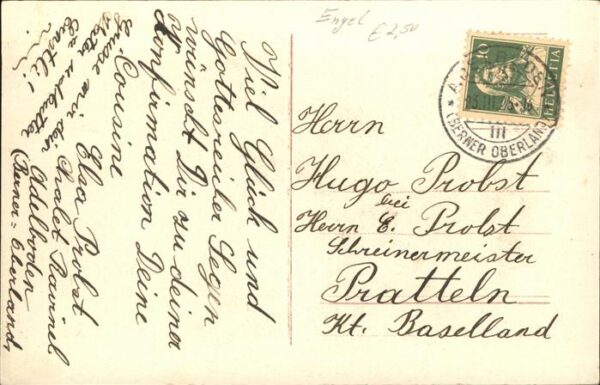 Engel
€ 2,50
Viel Glück und
Gottesreicher Segen
wünscht Dir zu deiner
Konfirmation Deine
Cousine
Elsa Probst
Chalet Ravinel
Adelboden
(Berner-Oberland)
Grüsse mir dein
Vater u. Mutter
10
HELVETIA
III
(BERNER OBERLAND)
Herrn
Hugo Probst
bei
Herrn E. Probst
Schreinermeister
Pratteln
Kt. Baselland